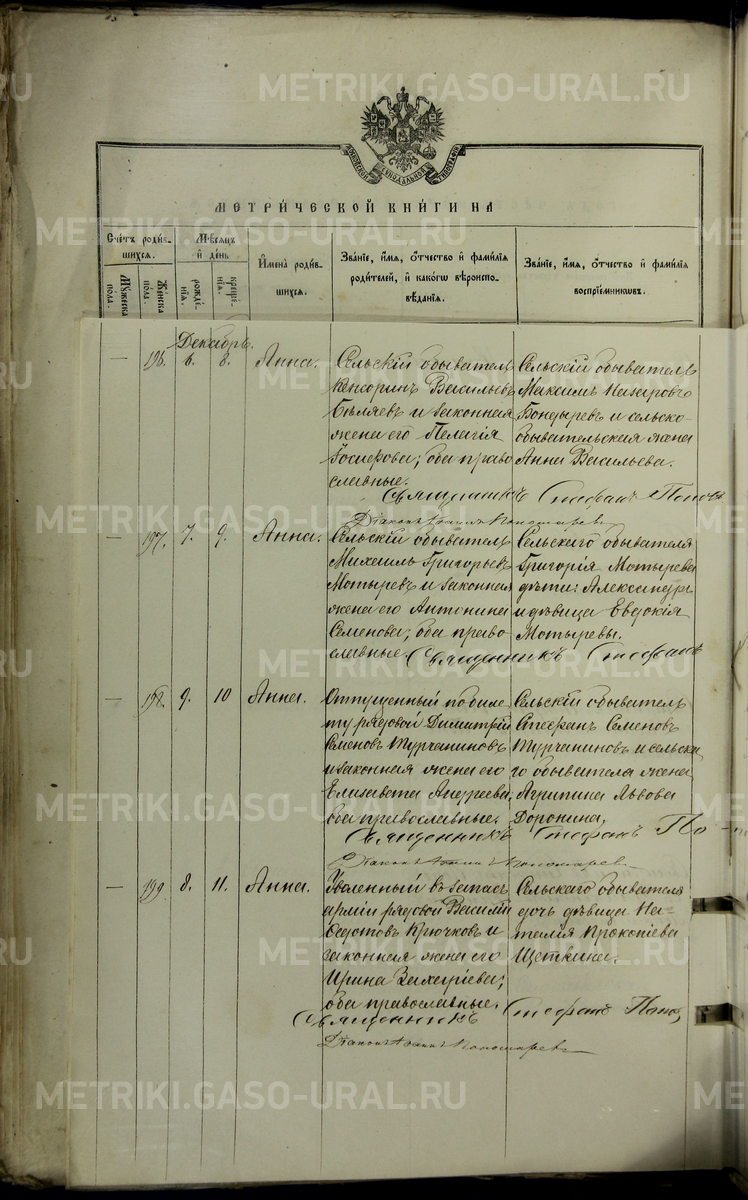 МЕТРИ́ЧЕСКОЙ КНИ́ГИ НА
Сче́тъ роди́в-
шихся.
Му́жеска
по́ла.
Же́нска
по́ла.
Мѣ́сяцъ
и҆ де́нь
рожде́-
нїѧ.
креще́-
нїѧ.
И҆мена̀ роди́в-
шихся.
Зва́нїе, и҆́мя, ѻ҆́тчество и҆ фами́лїя
роди́телей, и҆ како́гѡ вѣроиспо-
вѣ́данїя.
Зва́нїе, и҆́мя, ѻ҆́тчество и҆ фами́лїя
воспрїе́мникѡвъ.
Декабрь.
— 196. 6. 8. Анна.
Сельскій обыватель
Кенсоринъ Васильевъ
Бѣляевъ и законная
жена его Пелагія
Іосифова; оба право
славные.
Сельскій обыватель
Максимъ Назаровъ
Бондыревъ и сельско-
обывательская жена
Анна Васильева.
Священникъ Стефанъ Поповъ
Діаконъ Іоаннъ Пономаревъ
— 197. 7. 9. Анна.
Сельскій обыватель
Михаилъ Григорьевъ
Мотыревъ и законная
жена его Антонина
Семенова; оба право
славные.
Сельскаго обывателя
Григорія Мотырева
дѣти: Александръ
и дѣвица Евдокія
Мотыревы.
Священникъ Стефанъ
— 198. 9. 10 Анна.
Отпущенный по биле
ту рядовой Димитрій
Семеновъ Турчаниновъ
и законная жена его
Елизавета Андреева,
оба православные.
Сельскій обыватель
Стефанъ Семеновъ
Турчаниновъ и сельска
го обывателя жена
Агрипина Львова
Доронина.
Священникъ Стефанъ По
Діаконъ Іоаннъ Пономаревъ
— 199. 8. 11. Анна.
Уволенный въ запасъ
арміи рядовой Василій
Федотовъ Крючковъ и
законная жена его
Ирина Захаріева;
оба православные.
Сельскаго обывателя
дочь дѣвица На-
талія Прокопіева
Щеткина.
Священникъ Стефанъ Попо
Діаконъ Іоаннъ Пономаревъ
METRIKI.GASO-URAL.RU